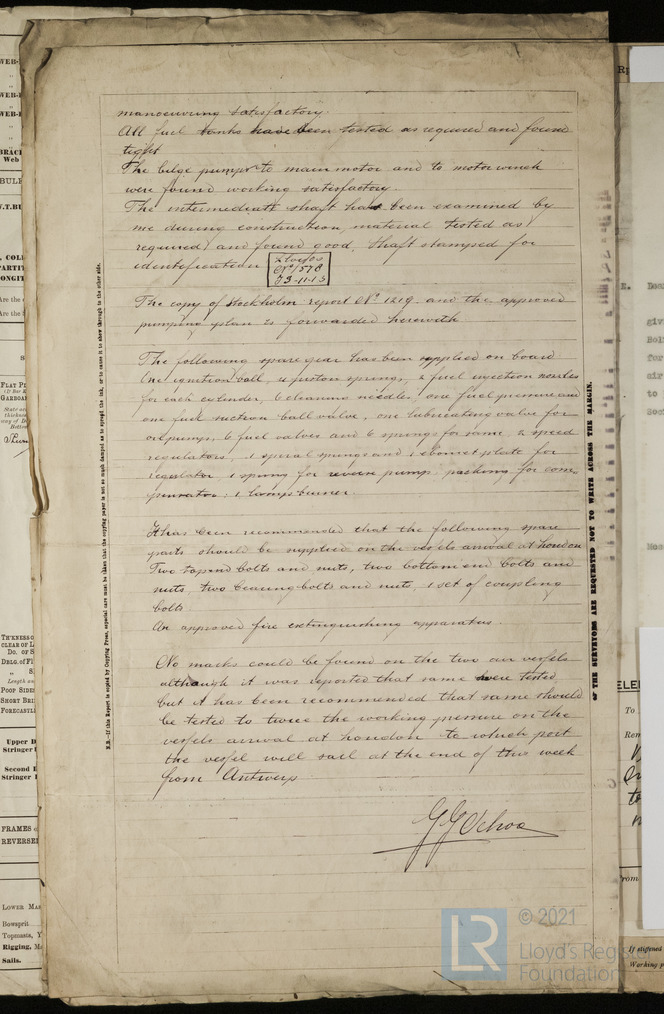 manoeuvring satisfactory.
All fuel tanks have been tested as required and found
tight
The bilge pumps to main motor and to motor winch
were found working satisfactory.
The intermediate shaft has been examined by
me during construction, material tested as
required, and found good. Shaft stamped for
identification
Lloyds
No 1578
13-11-13
The copy of Stockholm report No 1219 and the approved
pumping plan is forwarded herewith
The following spare gear has been supplied on board
One ignition ball, 4 piston springs, 2 fuel injection nozzles
for each cylinder, 6 cleaning needles one fuel pressure and
one fuel suction ball valve, one lubricating valve for
oil pumps, 6 fuel valves and 6 springs for same, 2 speed
regulators, 1 spiral spring and 1 plate for
regulator 1 spring for reverse pump packing for com-
: 1 lamp burner.
It has been recommended that the following spare
parts should be supplied on the vessels arrival at London
Two top end bolts and nuts, two bottom end bolts and
nuts, two bearing bolts and nuts, 1 set of coupling
bolts
An approved fire extinguishing apparatus.
No marks could be found on the two air vessels
although it was reported that same were tested
but it has been recommended that same should
be tested to twice the working pressure on the
vessels arrival at London to which port
the vessel will sail at the end of this week
from Antwerp
G G Ochoa
N.B.—If this Report is copied by Copying Press, especial care must be taken that the copying paper is not so much damped as to spread the ink, or to cause it to show through to the other side.
OF THE SURVEYORS ARE REQUESTED NOT TO WRITE ACROSS THE MARGIN.
BRAC
Web
BULK
FLAT PL
GARBOA
State ac
thickness
way of D
Bottom
THICKNESS O
CLEAR OF L
DO. OF S
DBLG. of Fl
Length and
POOP SIDES
SHORT BRI
FORECASTLE
Upper D
Stringer I
Second D
Stringer I
FRAMES
REVERSED
LOWER MAS
Bowsprit
Topmasts, Y
Rigging, M
Sails.
To
If stiffened
Working p
LR
© 2021
Lloyd's Register
Foundation